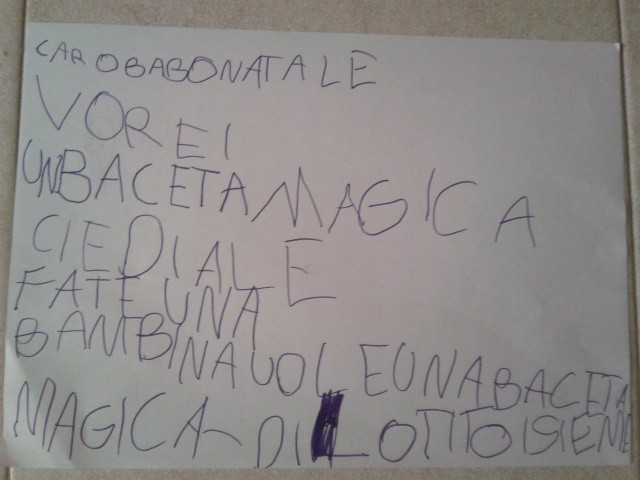 CAROBABONATALE
VOREI
UNBACETAMAGICA
CIEDIALE
FATE UNA
BAMBINAUOLEUNABACETA
MAGICA DILOTTOISIEME